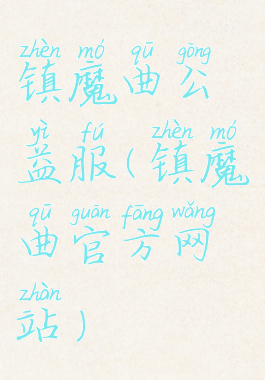 zhèn mó qū gōng
镇魔曲公
yì fú zhèn mó
益服(镇魔
qū guān fāng wǎng
曲官方网
zhàn
站)